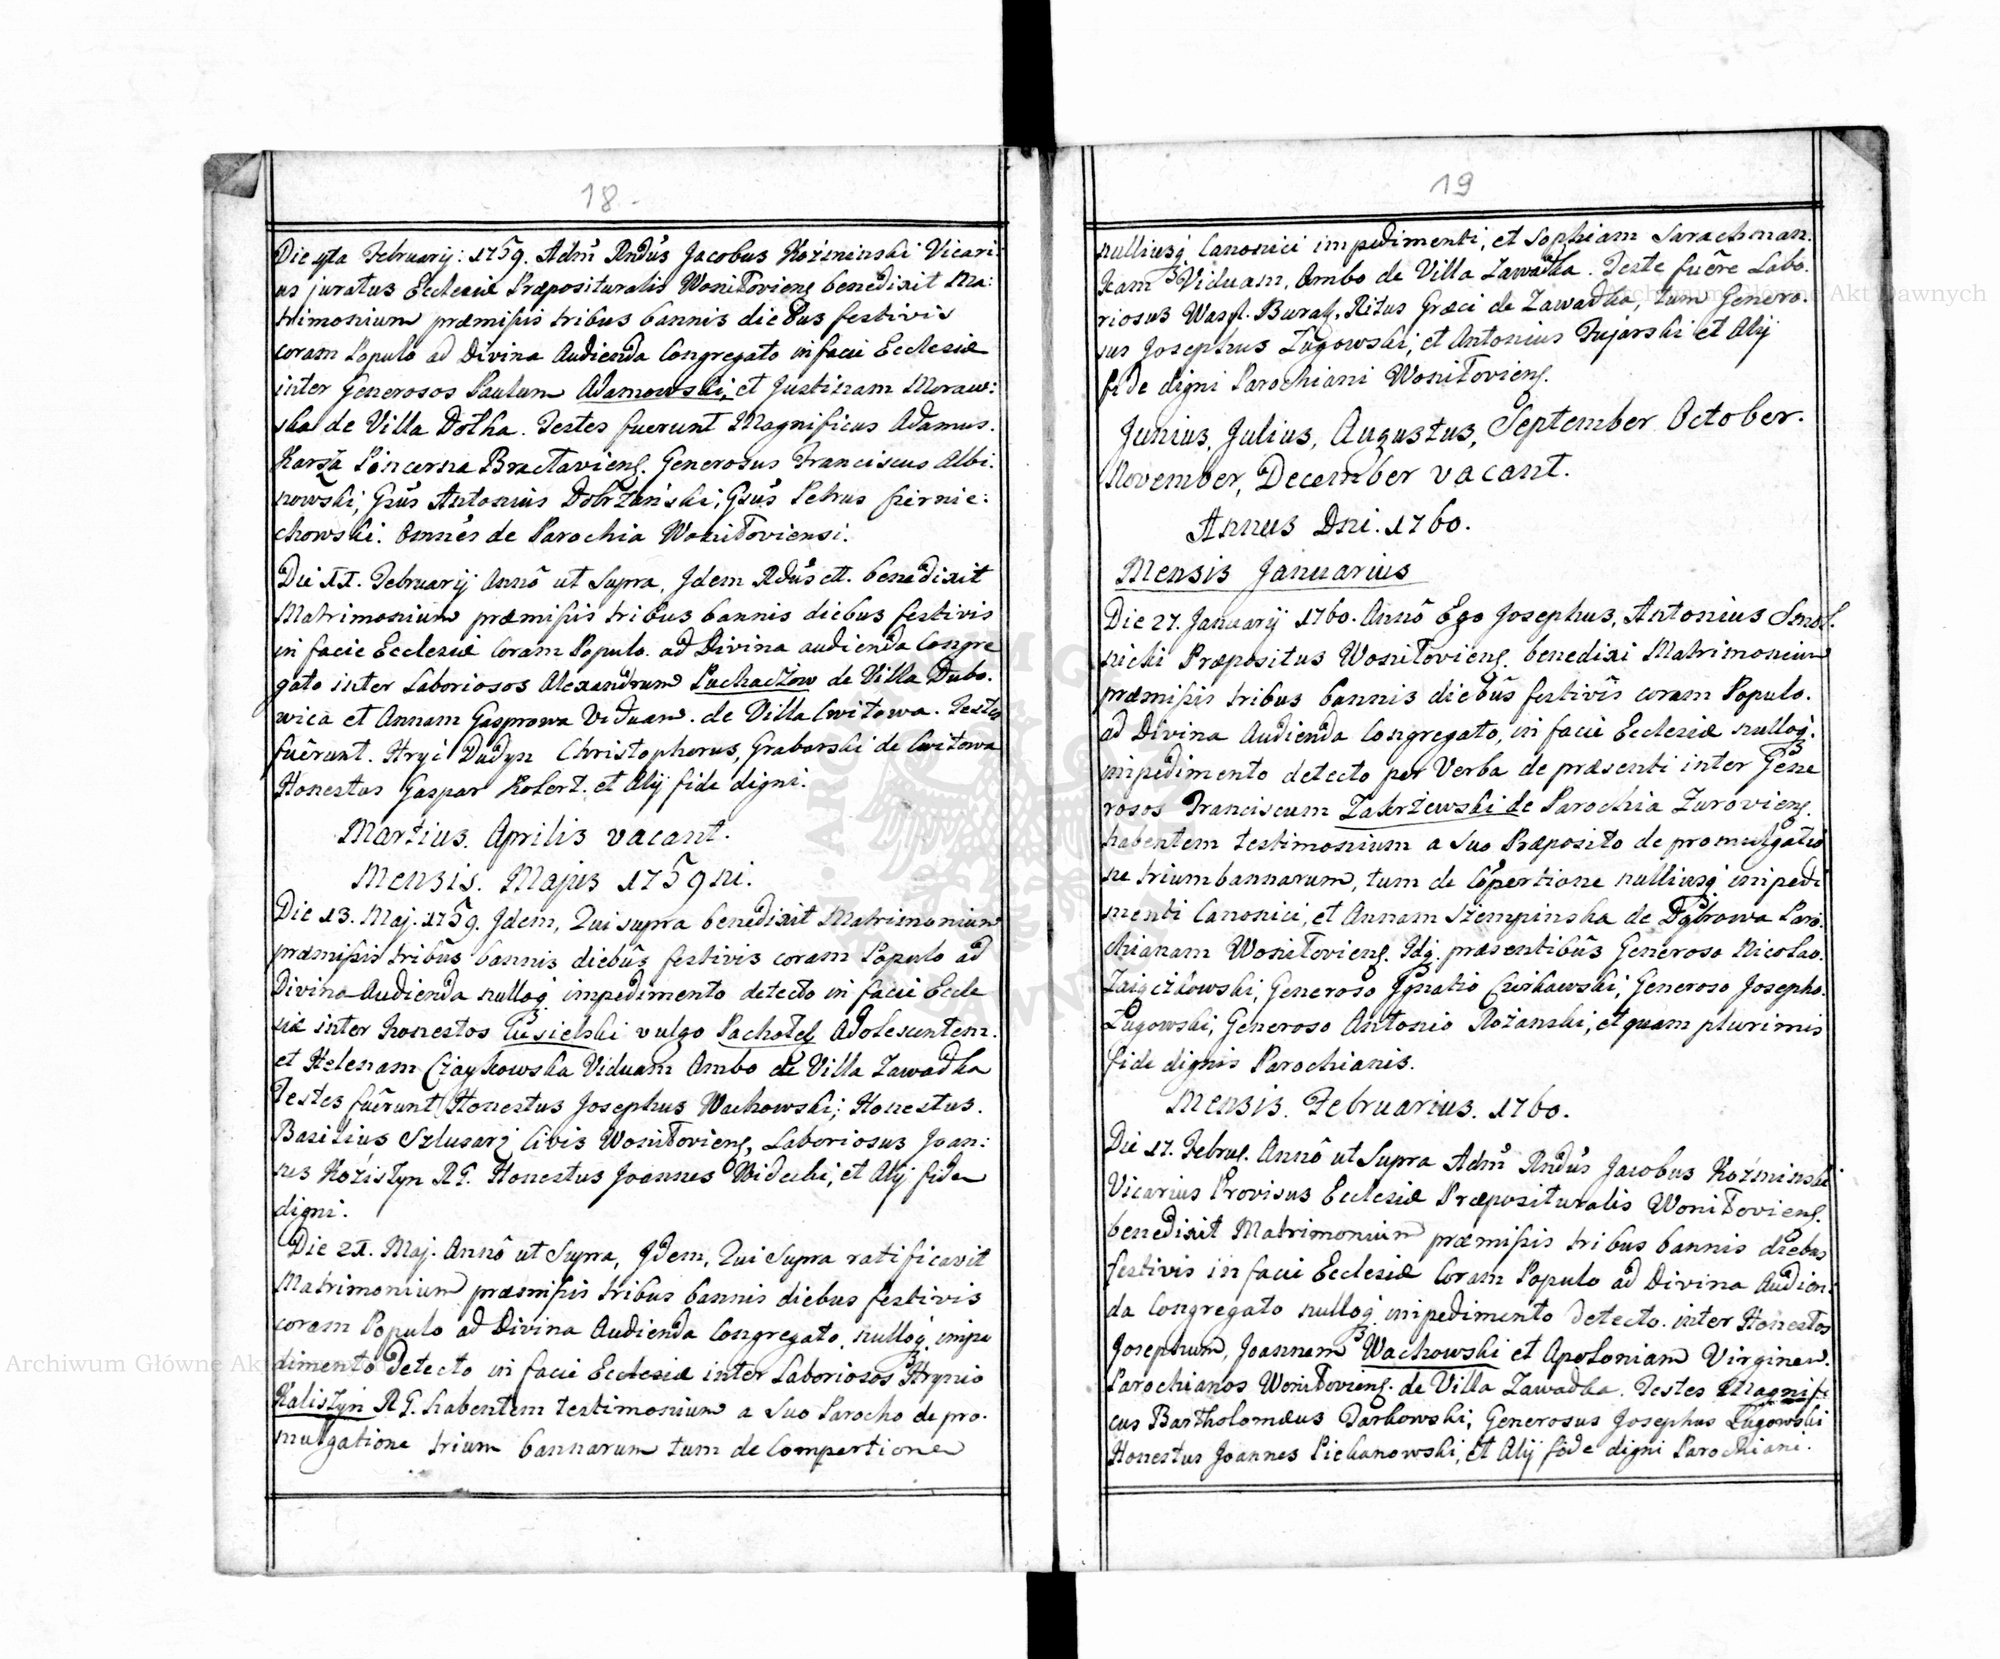 18.
Die 4ta Februarij: 1759. Adm̃ Rndūs Jacobus Koźminski Vicari:
us juratus Ecclesiæ Præposituralis Woniłoviens. benedixit Ma:
trimonium præmissis tribus bannis diebus festivis
coram Populo ad Divina Audienda Congregato in facie Ecclesiæ
inter Generosos Paulum Adamowski, et Justinam Moraw:
ska de Villa Dołha. Testes fuerunt Magnificus Adamus.
Karsza Pincerna Bractaviens. Generosus Franciscus Albi:
nowski, Gsūs Antonius Dobrzański, Gsūs Petrus
chowski. Omnes de Parochia Woniłoviensi.
Die II. Februarij Annô ut Supra, Jdem Rdūs ett. benedixit
Matrimonium præmissis tribus bannis diebus festivis
in facie Ecclesiæ Coram Populo. ad Divina audienda Congre
gato inter Laboriosos Alexandrum Puchaczow de Villa Dubo.
wica et Annam Gasprowa Viduam. de Villa Cwitowa. Testes
fuêrunt. Hryć Dudyn Christophorus, Grabarski de Cwitowa
Honestus Gaspar Robert. et Alij fide digni.
Martius. Aprilis vacant.
Mensis. Majus 1759ni.
Die 13. Maj. 1759. Jdem, Qui supra benedixit Matrimonium
præmissis tribūs bannis diebūs festivis coram Populo ad
Divina Audienda nulloq. impedimento detecto in facie Eccle
siæ inter honestos Cusielski vulgo Pachołek Adolescentem.
et Helenam Czaykowska Viduam Ambo de Villa Zawadka
Testes fuêrunt Honestus Josephus Wachowski; Honestus.
Basilius Szlusarz Civis Woniłoviens, Laboriosus Joan:
nes Koźiszyn R G. Honestus Joannes Widecki, et Alij fide
digni.
Die 2I. Maj. Annô ut Supra, Jdem, Qui Supra ratificavit
Matrimonium præmissis tribus bannis diebus festivis
coram Populo ad Divina Audienda Congregato. nulloq. impe
dimento detecto in facie Ecclesiæ inter Laboriosos Hrynio
Kaliszyn R G. habentem testimonium a Suo Parocho de pro.
mulgatione trium bannarum tum de Compertione
19
nulliusq. Canonici impedimenti, et Sophiam Sarachman.
kam Viduam, Ambo de Villa Zawadka. Teste fuêre Labo.
riosus Wasyl. Burak, Ritus Græci de Zawadka, tum Genero.
sus Josephus Ługowski, et Antonius Fujarski et Alij
fide digni Parochiani Woniłoviens.
Junius, Julius, Augustus, September October.
November, December vacant.
Annus Dni. 1760.
Mensis Januarius
Die 27. Januarij 1760. Annô Ego Josephus, Antonius Smol.
nicki Præpositus Woniłoviens. benedixi Matrimonium
præmissis tribus bannis diebūs festivīs coram Populo.
ad Divina Audienda Congregato, in facie Ecclesiæ nulloq.
impedimento detecto per Verba de præsenti inter Gene
rosos Franciscum Zakrzewski de Parochia Zuroviens.
habentem testimonium a Suo Præposito de promulgatio
ne trium bannarum, tum de Cōpertione nulliusq. impedi
menti Canonici, et Annam Szempinska de Dąbrowa Paro.
chianam Woniłoviens. Jdq. præsentibūs Generoso Nicolao.
Zaiączkowski, Generoso Jgnatio Cwikawski, Generoso Josepho.
Ługowski, Generoso Antonio Rożanski, et quam plurimis
fide dignis Parochianis.
Mensis. Februarius. 1760.
Die 17. Februs. Annô ut Supra Adm̃ Rndūs Jacobus Koźminski
Vicarius Provisus Ecclesiæ Præposituralis Woniłoviens.
benedixit Matrimonium præmissis tribus bannis diebus
festivis in facie Ecclesiæ Coram Populo ad Divina Audien.
da Congregato nulloq. impedimento detecto. inter Honestos
Josephum, Joannem Wachowski et Apoloniam Virginem.
Parochianos Woniłoviens. de Villa Zawadka. Testes Magnifi.
cus Bartholomæus Darkowski, Generosus Josephus Ługowski
Honestus Joannes Piekanowski, et Alij fide digni Parochiani.
Archiwum Główne Akt Dawnych